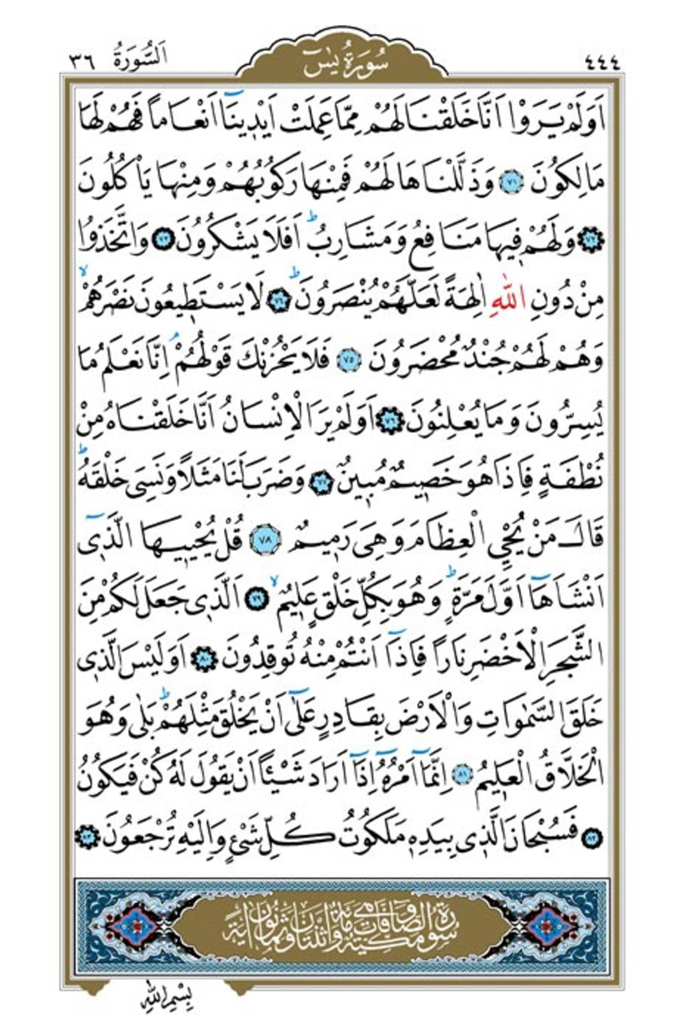 ٤٤٤ سُورَةُ يٰسٓ اَلسُّورَةُ ٣٦
اَوَلَمْ يَرَوْا اَنَّا خَلَقْنَا لَهُمْ مِمَّا عَمِلَتْ اَيْدٖينَٓا اَنْعَاماً فَهُمْ لَهَا
مَالِكُونَ ﴿٧١﴾ وَذَلَّلْنَاهَا لَهُمْ فَمِنْهَا رَكُوبُهُمْ وَمِنْهَا يَاْكُلُونَ
﴿٧٢﴾ وَلَهُمْ فٖيهَا مَنَافِعُ وَمَشَارِبُؕ اَفَلَا يَشْكُرُونَ ﴿٧٣﴾ وَاتَّخَذُوا
مِنْ دُونِ اللّٰهِ اٰلِهَةً لَعَلَّهُمْ يُنْصَرُونَؕ ﴿٧٤﴾ لَا يَسْتَطٖيعُونَ نَصْرَهُمْۙ
وَهُمْ لَهُمْ جُنْدٌ مُحْضَرُونَ ﴿٧٥﴾ فَلَا يَحْزُنْكَ قَوْلُهُمْۘ اِنَّا نَعْلَمُ مَا
يُسِرُّونَ وَمَا يُعْلِنُونَ ﴿٧٦﴾ اَوَلَمْ يَرَ الْاِنْسَانُ اَنَّا خَلَقْنَاهُ مِنْ
نُطْفَةٍ فَاِذَا هُوَ خَصٖيمٌ مُبٖينٌ ﴿٧٧﴾ وَضَرَبَ لَنَا مَثَلاً وَنَسِيَ خَلْقَهُؕ
قَالَ مَنْ يُحْيِ الْعِظَامَ وَهِيَ رَمٖيمٌ ﴿٧٨﴾ قُلْ يُحْيٖيهَا الَّذٖٓي
اَنْشَاَهَٓا اَوَّلَ مَرَّةٍؕ وَهُوَ بِكُلِّ خَلْقٍ عَلٖيمٌۙ ﴿٧٩﴾ اَلَّذٖي جَعَلَ لَكُمْ مِنَ
الشَّجَرِ الْاَخْضَرِ نَاراً فَاِذَٓا اَنْتُمْ مِنْهُ تُوقِدُونَ ﴿٨٠﴾ اَوَلَيْسَ الَّذٖي
خَلَقَ السَّمٰوَاتِ وَالْاَرْضَ بِقَادِرٍ عَلٰٓى اَنْ يَخْلُقَ مِثْلَهُمْؕ بَلٰى وَهُوَ
الْخَلَّاقُ الْعَلٖيمُ ﴿٨١﴾ اِنَّمَٓا اَمْرُهُٓ اِذَٓا اَرَادَ شَيْـٔاً اَنْ يَقُولَ لَهُ كُنْ فَيَكُونُ
﴿٨٢﴾ فَسُبْحَانَ الَّذٖي بِيَدِهٖ مَلَكُوتُ كُلِّ شَيْءٍ وَاِلَيْهِ تُرْجَعُونَ ﴿٨٣﴾
سُورَةُ الصَّافَّاتِ مَكِّيَّةٌ وَهِيَ مِائَةٌ وَاثْنَتَانِ وَثَمَانُونَ اٰيَةً
بِسْمِ اللّٰهِ